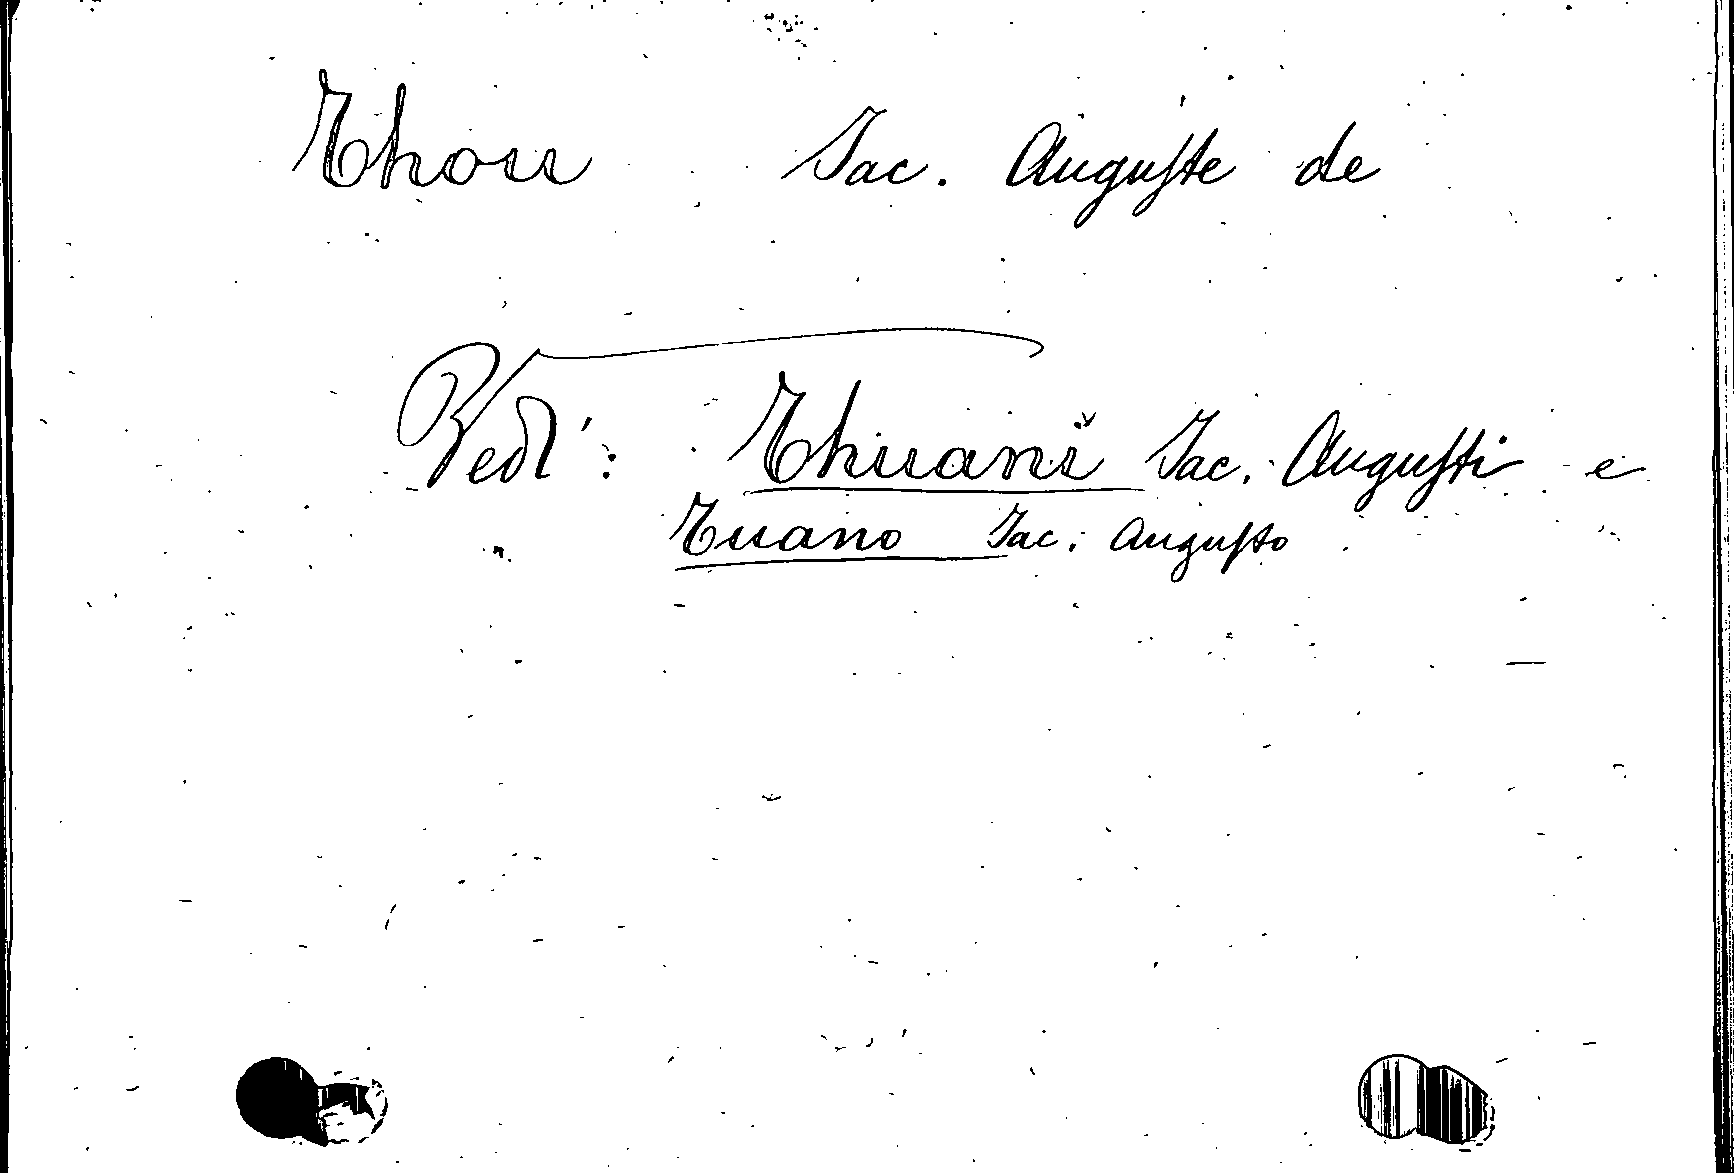 Thou Jac. Auguste de
Vedi: Thuani Jac. Augusti e
Tuano Jac. Augusto